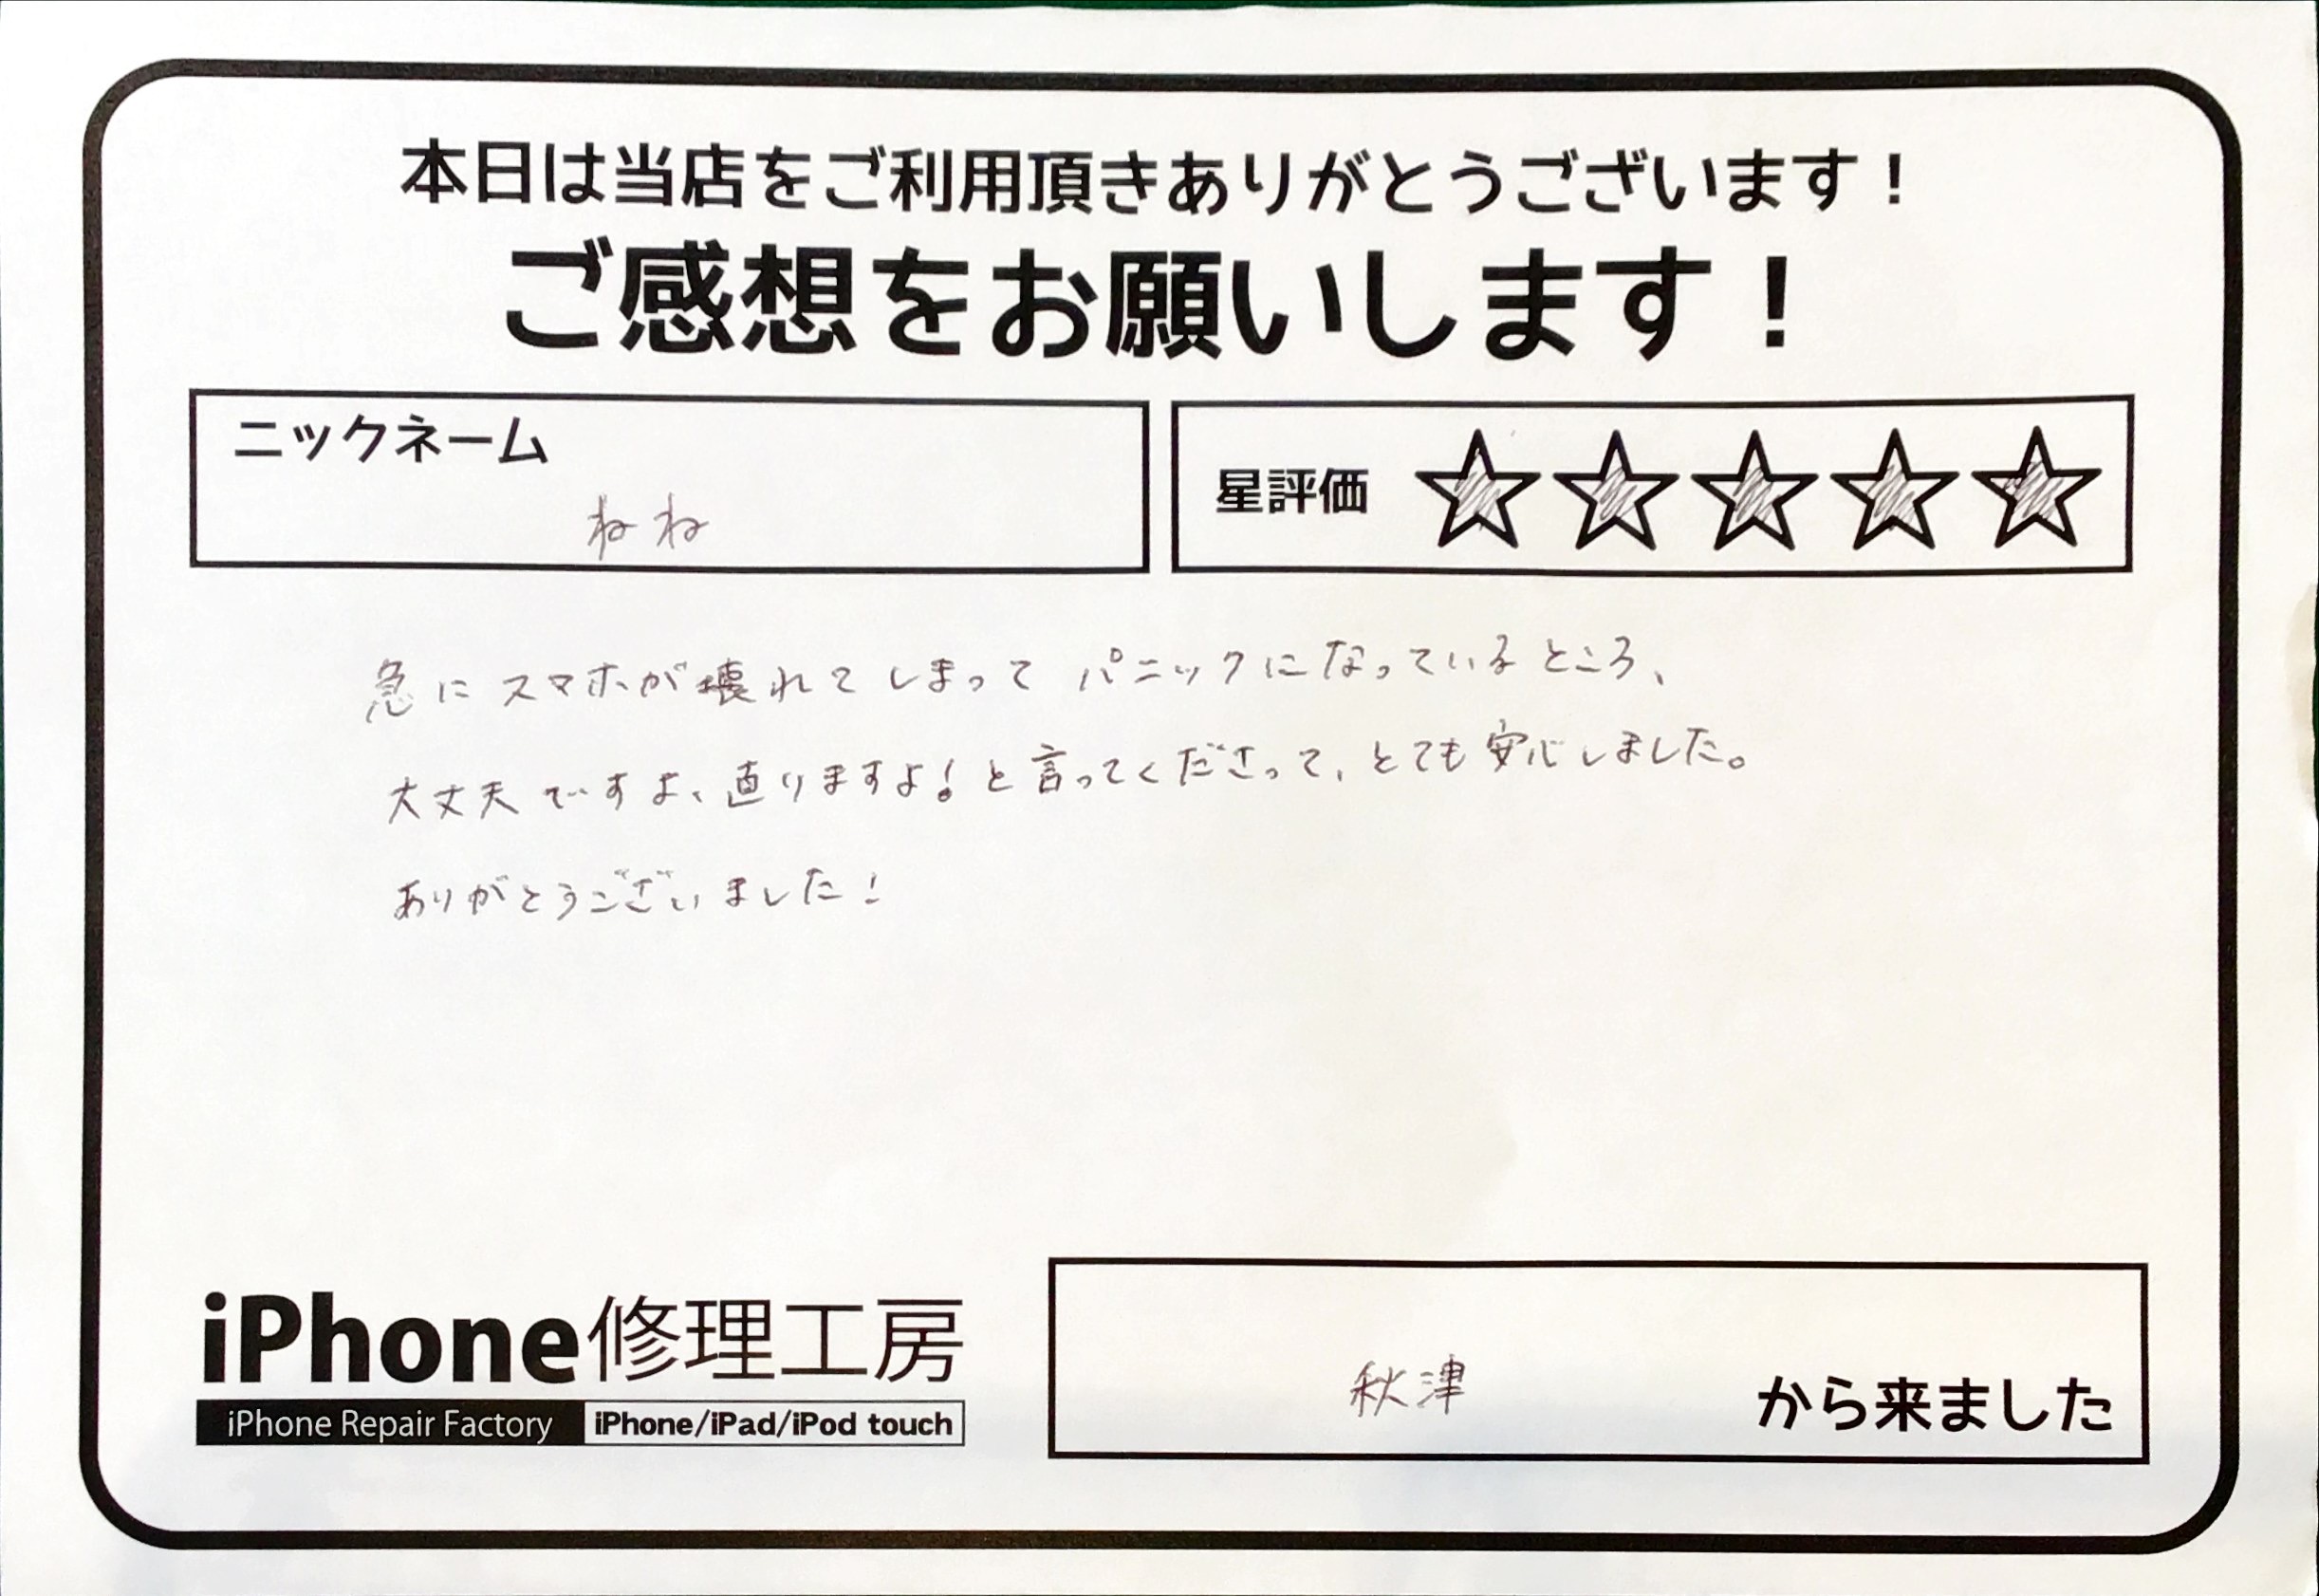 本日は当店をご利用頂きありがとうございます！
ご感想をお願いします！
ニックネーム
ねね
星評価 ☆☆☆☆☆
急にスマホが壊れてしまってパニックになっているところ、
大丈夫ですよ、直りますよ！と言ってくださって、とても安心しました。
ありがとうございました！
iPhone修理工房
iPhone Repair Factory iPhone/iPad/iPod touch
秋津 から来ました